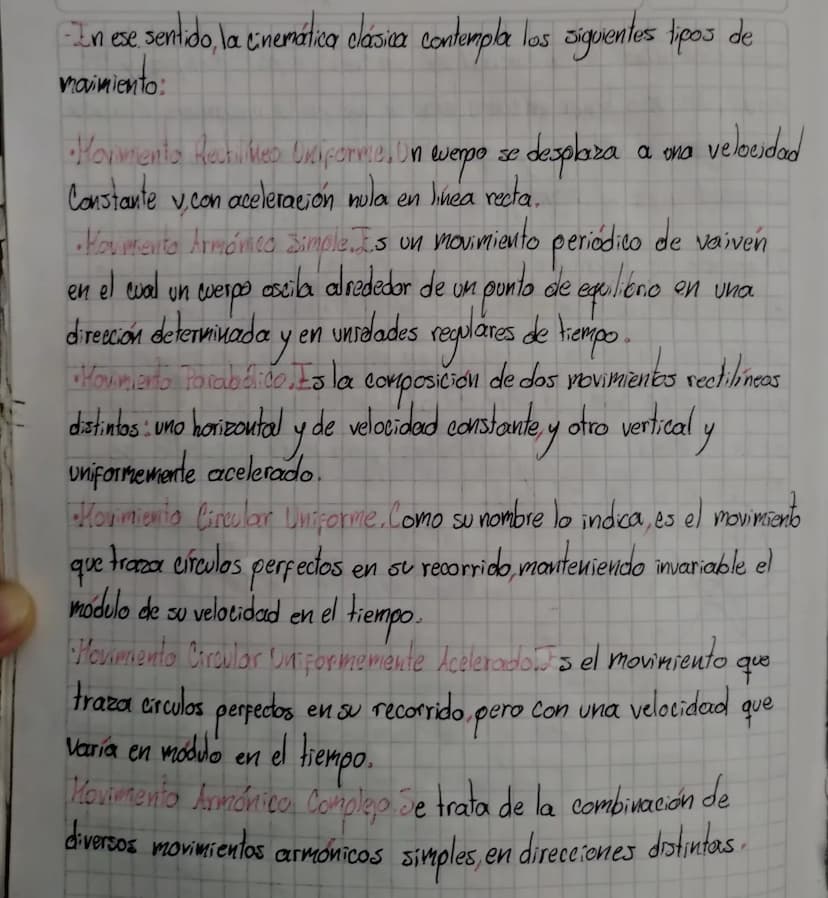 -En ese sentido, la cinemática clásica contempla los siguientes tipos de
movimiento:
•Movimiento Rectilíneo Uniforme. Un cuerpo se desplaza a una velocidad
Constante v, con aceleración nula en línea recta.
•Movimiento Armónico Simple. Es un movimiento periódico de vaivén
en el cual un cuerpo oscila alrededor de un punto de equilibrio en una
dirección determinada y en unidades regulares de tiempo.
•Movimiento Parabólico. Es la composición de dos movimientos rectilíneos
distintos: uno horizontal y de velocidad constante, y otro vertical y
uniformemente acelerado.
•Movimiento Circular Uniforme. Como su nombre lo indica, es el movimiento
que traza círculos perfectos en su recorrido, manteniendo invariable el
módulo de su velocidad en el tiempo.
•Movimiento Circular Uniformemente Acelerado. Es el movimiento que
traza círculos perfectos en su recorrido, pero con una velocidad que
varía en módulo en el tiempo.
Movimiento Armónico Complejo. Se trata de la combinación de
diversos movimientos armónicos simples, en direcciones distintas.